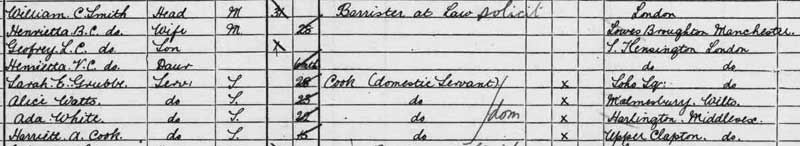 William C. Smith Head M. 31 Barrister at Law Solicit London
Henrietta B.C. do. Wife M. 25 Lower Broughton Manchester.
Geofrey L.C. do. Son S. Kensington London
Henrietta V.C. do. Daur do do
Sarah E. Grubbe. Serv. S. 28 Cook (domestic Servant) x Soho Sq. do
Alice Watts. do S. 25 do x Malmesbury. Wilts.
Ada White. do S. 22 do dom x Harlington. Middlesex.
Harriett A. Cook do S. 15 do x Upper Clapton. do.